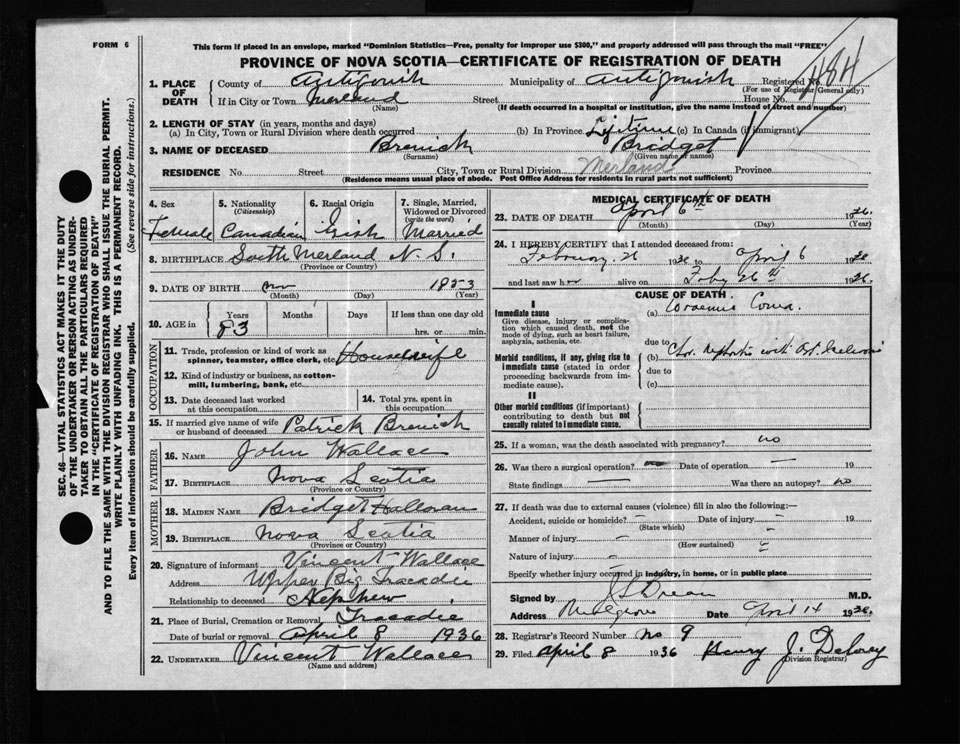 FORM 6
This form if placed in an envelope, marked "Dominion Statistics—Free, penalty for improper use $300," and properly addressed will pass through the mail "FREE"
PROVINCE OF NOVA SCOTIA—CERTIFICATE OF REGISTRATION OF DEATH
1. PLACE OF DEATH
County of Antigonish Municipality of Antigonish Registered No. 484
(For use of Registrar General only)
If in City or Town Merland Street House No.
(Name) (If death occurred in a hospital or institution, give the name instead of street and number)
2. LENGTH OF STAY (in years, months and days)
(a) In City, Town or Rural Division where death occurred (b) In Province Lifetime (c) In Canada (if immigrant)
3. NAME OF DECEASED Brenick Bridget
(Surname) (Given name or names)
RESIDENCE No. Street City, Town or Rural Division Merland Province
(Residence means usual place of abode. Post Office Address for residents in rural parts not sufficient)
4. Sex Female
5. Nationality (Citizenship) Canadian
6. Racial Origin Irish
7. Single, Married, Widowed or Divorced (write the word) Married
8. BIRTHPLACE South Merland N. S.
(Province or Country)
9. DATE OF BIRTH Nov 1853
(Month) (Day) (Year)
10. AGE in Years 83 Months Days If less than one day old hrs. or min.
OCCUPATION
11. Trade, profession or kind of work as spinner, teamster, office clerk, etc. Housewife
12. Kind of industry or business, as cotton-mill, lumbering, bank, etc.
13. Date deceased last worked at this occupation
14. Total yrs. spent in this occupation
15. If married give name of wife or husband of deceased Patrick Brenick
FATHER
16. NAME John Wallace
17. BIRTHPLACE Nova Scotia
(Province or Country)
MOTHER
18. MAIDEN NAME Bridget Halloran
19. BIRTHPLACE Nova Scotia
(Province or Country)
20. Signature of informant Vincent Wallace
Address Upper Big Tracadie
Relationship to deceased Nephew
21. Place of Burial, Cremation or Removal Tracadie
Date of burial or removal April 8 1936
22. UNDERTAKER Vincent Wallace
(Name and address)
MEDICAL CERTIFICATE OF DEATH
23. DATE OF DEATH April 6th 1936.
(Month) (Day) (Year)
24. I HEREBY CERTIFY that I attended deceased from:
February 26 1936 to April 6 1936
and last saw her alive on Feby 26th 1936.
CAUSE OF DEATH
I
Immediate cause
Give disease, injury or complication which caused death, not the mode of dying, such as heart failure, asphyxia, asthenia, etc.
(a) Uraemic Coma.
due to
Morbid conditions, if any, giving rise to immediate cause (stated in order proceeding backwards from immediate cause).
(b) Chr. Nephritis with Art. Sclerosis
due to
(c)
II
Other morbid conditions (if important) contributing to death but not causally related to immediate cause.
25. If a woman, was the death associated with pregnancy? no
26. Was there a surgical operation? no Date of operation — 19
State findings — Was there an autopsy? no
27. If death was due to external causes (violence) fill in also the following:—
Accident, suicide or homicide? — Date of injury — 19
(State which)
Manner of injury —
(How sustained)
Nature of injury —
Specify whether injury occurred in industry, in home, or in public place
Signed by M.D.
Address Mulgrave Date April 14 1936.
28. Registrar's Record Number no 9
29. Filed April 8 1936 Henry J. Delorey
Division Registrar)
SEC. 46—VITAL STATISTICS ACT MAKES IT THE DUTY
OF THE UNDERTAKER OR PERSON ACTING AS UNDER-
TAKER TO OBTAIN ALL THE PARTICULARS REQUIRED
IN THE "CERTIFICATE OF REGISTRATION OF DEATH"
AND TO FILE THE SAME WITH THE DIVISION REGISTRAR WHO SHALL ISSUE THE BURIAL PERMIT.
WRITE PLAINLY WITH UNFADING INK. THIS IS A PERMANENT RECORD.
Every item of information should be carefully supplied. (See reverse side for instructions.)